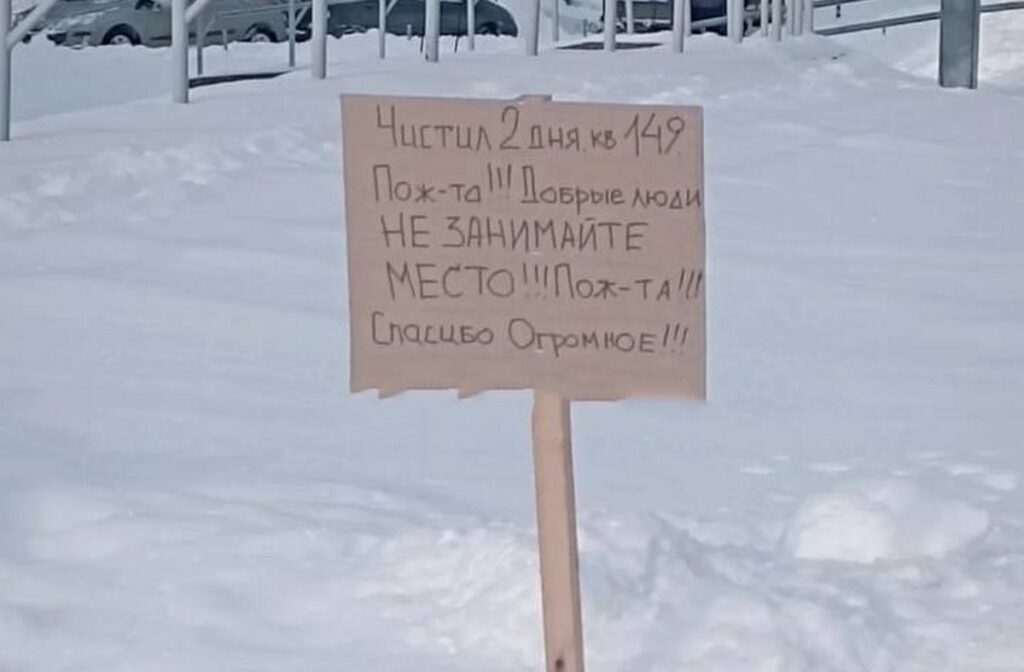 Чистил 2 дня. кв 149
Пож-та!!! Добрые люди
НЕ ЗАНИМАЙТЕ
МЕСТО!!! Пож-та!!!
Спасибо Огромное!!!